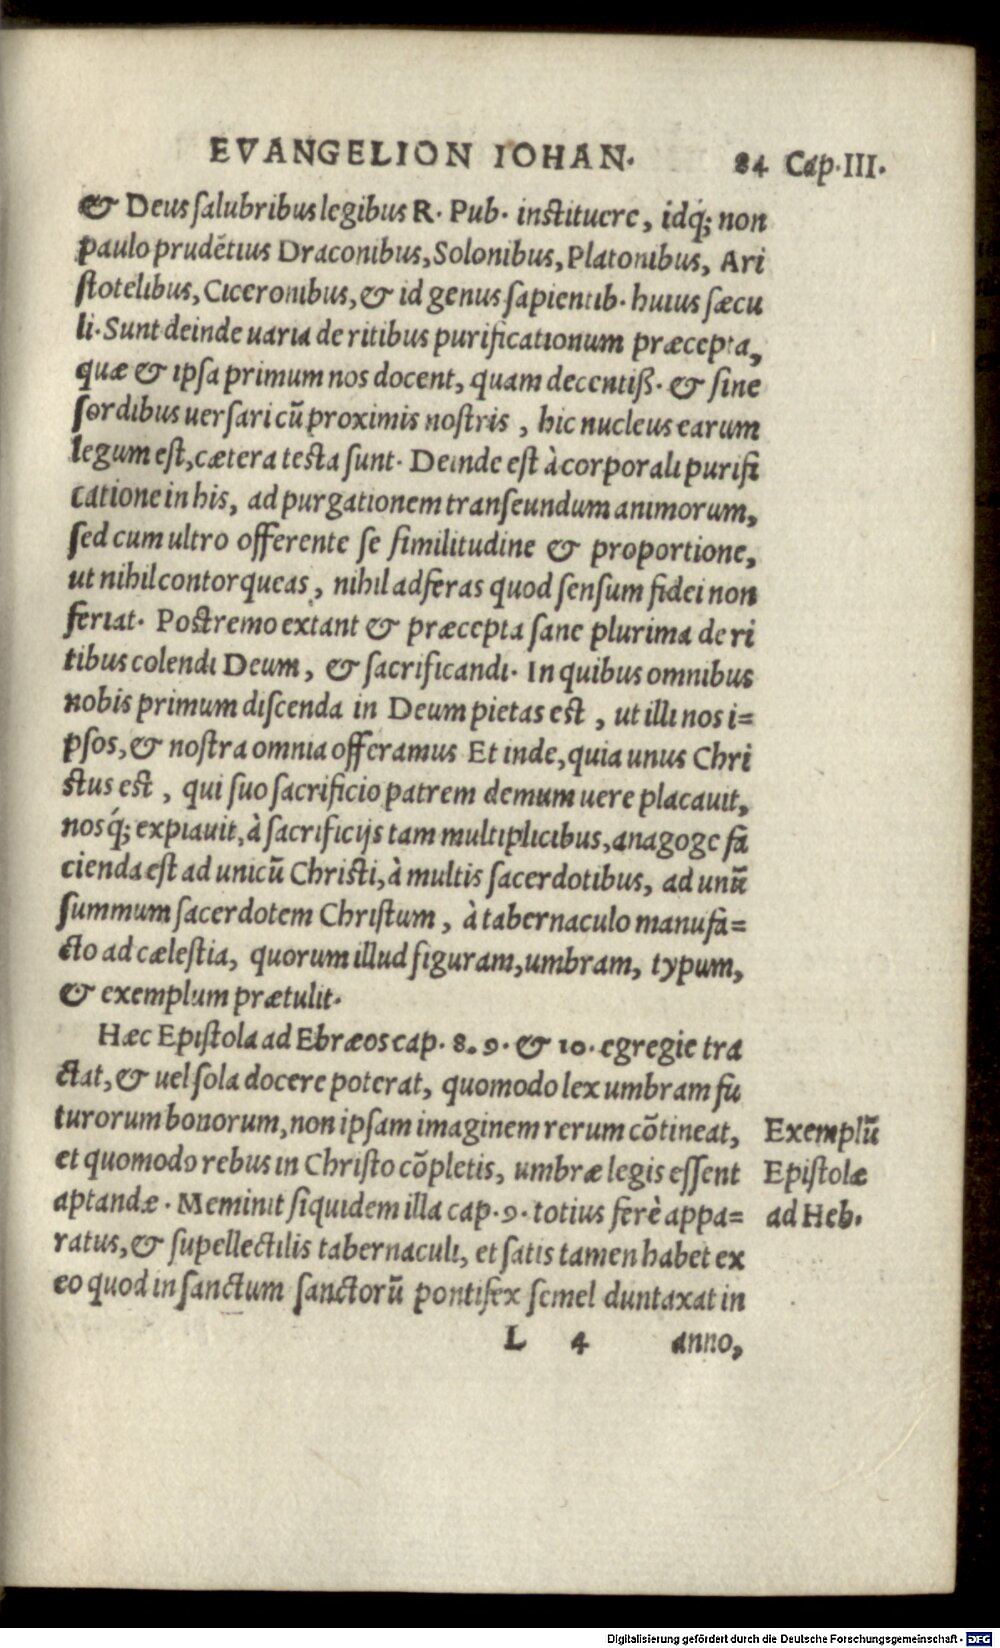 EVANGELION IOHAN. 84 Cap. III.
& Deus salubribus legibus R. Pub. instituere, idq́; non
paulo prudẽtius Draconibus, Solonibus, Platonibus, Ari
stotelibus, Ciceronibus, & id genus sapientib. huius sæcu
li. Sunt deinde uaria de ritibus purificationum præcepta,
quæ & ipsa primum nos docent, quam decentiß. & sine
sordibus uersari cũ proximis nostris, hic nucleus earum
legum est, cætera testa sunt. Deinde est à corporali purifi
catione in his, ad purgationem transeundum animorum,
sed cum ultro offerente se similitudine & proportione,
ut nihil contorqueas, nihil adferas quod sensum fidei non
feriat. Postremo extant & præcepta sane plurima de ri
tibus colendi Deum, & sacrificandi. In quibus omnibus
nobis primum discenda in Deum pietas est, ut illi nos i=
psos, & nostra omnia offeramus Et inde, quia unus Chri
stus est, qui suo sacrificio patrem demum uere placauit,
nosq́; expiauit, à sacrificijs tam multiplicibus, anagoge fa
cienda est ad unicũ Christi, à multis sacerdotibus, ad unũ
summum sacerdotem Christum, à tabernaculo manufa=
cto ad cælestia, quorum illud figuram, umbram, typum,
& exemplum prætulit.
Hæc Epistola ad Ebræos cap. 8. 9. & 10. egregie tra
ctat, & uel sola docere poterat, quomodo lex umbram fu
turorum bonorum, non ipsam imaginem rerum cõtineat,
et quomodo rebus in Christo cõpletis, umbræ legis essent
aptandæ. Meminit siquidem illa cap. 9. totius ferè appa=
ratus, & supellectilis tabernaculi, et satis tamen habet ex
eo quod in sanctum sanctorũ pontifex semel duntaxat in
L 4 anno,
Exemplũ
Epistolæ
ad Heb.
Digitalisierung gefördert durch die Deutsche Forschungsgemeinschaft - DFG